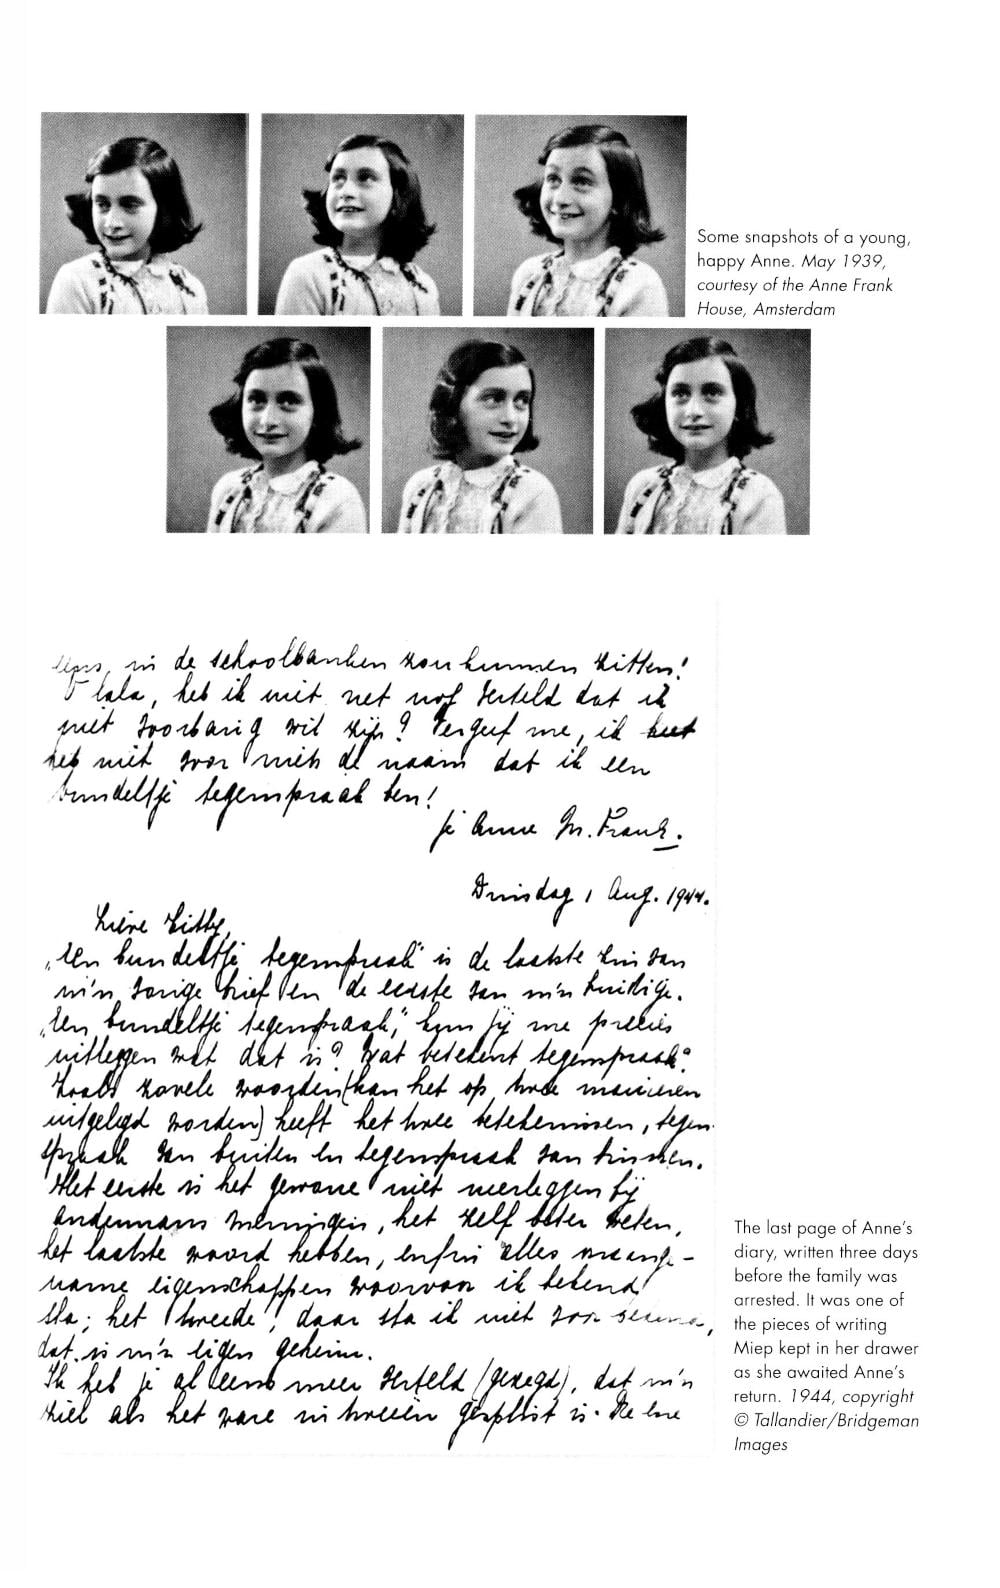 Some snapshots of a young,
happy Anne. May 1939,
courtesy of the Anne Frank
House, Amsterdam
in de schoolbanken zou kunnen zitten!
O lala, heb ik niet net nog verteld dat ik
niet voorbarig wil zijn? Vergeef me, ik
heb niet voor niets de naam dat ik een
bundeltje tegenspraak ben!
je Anne M. Frank.
Dinsdag 1 Aug. 1944.
Lieve Kitty,
„Een bundeltje tegenspraak" is de laatste zin van
m'n vorige brief en de eerste van m'n huidige.
„Een bundeltje tegenspraak," kun jij me precies
uitleggen wat dat is? Wat betekent tegenspraak?
Zoals zovele woorden (kan het op twee manieren
uitgelegd worden) heeft het twee betekenissen, tegen-
spraak van buiten en tegenspraak van binnen.
Het eerste is het gewone niet neerleggen bij
andermans meningen, het zelf beter weten,
het laatste woord hebben, enfin alles onaange-
name eigenschappen waarvoor ik bekend
sta; het tweede, daar sta ik niet voor bekend,
dat is m'n eigen geheim.
Ik heb je al eens meer verteld (gezegd), dat m'n
ziel als het ware in tweeën gesplitst is. De ene
The last page of Anne's
diary, written three days
before the family was
arrested. It was one of
the pieces of writing
Miep kept in her drawer
as she awaited Anne's
return. 1944, copyright
© Tallandier/Bridgeman
Images